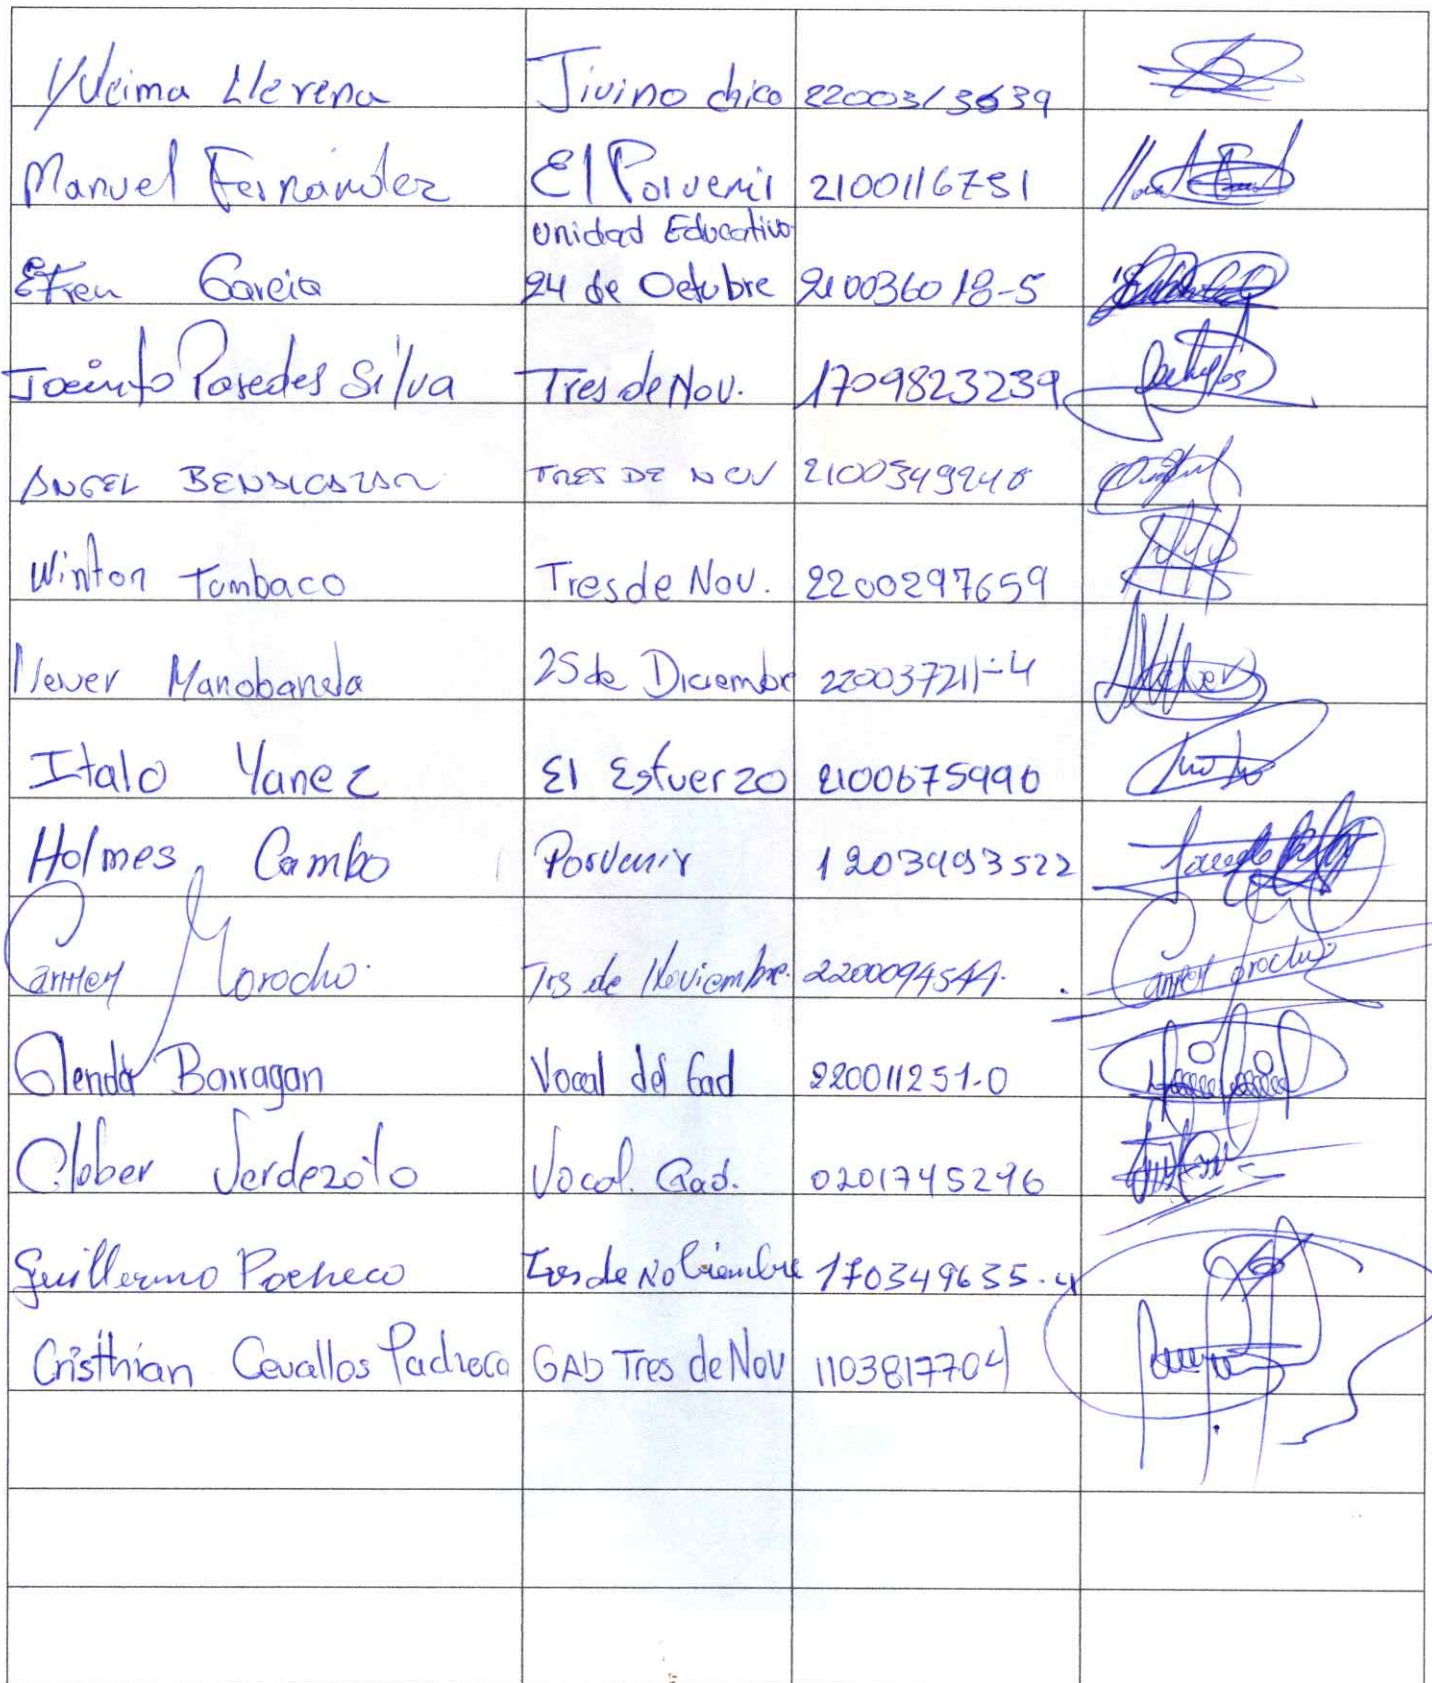 Yucima Llerena Jivino chico 2200313639
Manuel Fernández El Porvenir 2100116731
Unidad Educativa
Efren Garcia 24 de Octubre 210036018-5
Jacinto Paredes Silva Tres de Nov. 1709823239
ANGEL TRES DE NOV 2100349240
Winton Tumbaco Tres de Nov. 2200297659
Never Manobanda 25 de Diciembre 220037211-4
Italo Yanez El Esfuerzo 2100675990
Holmes Cambo Porvenir 1203493522
Carmen Morocho. Trs de Noviembre. 2200094544.
Glenda Barragan Vocal del Gad 220011251-0
Clober Verdezoto Vocal. Gad. 0201745296
Guillermo Pacheco Tres de Nobiembre 170349635-4
Cristhian Cevallos Pacheco GAD Tres de Nov 1103817704